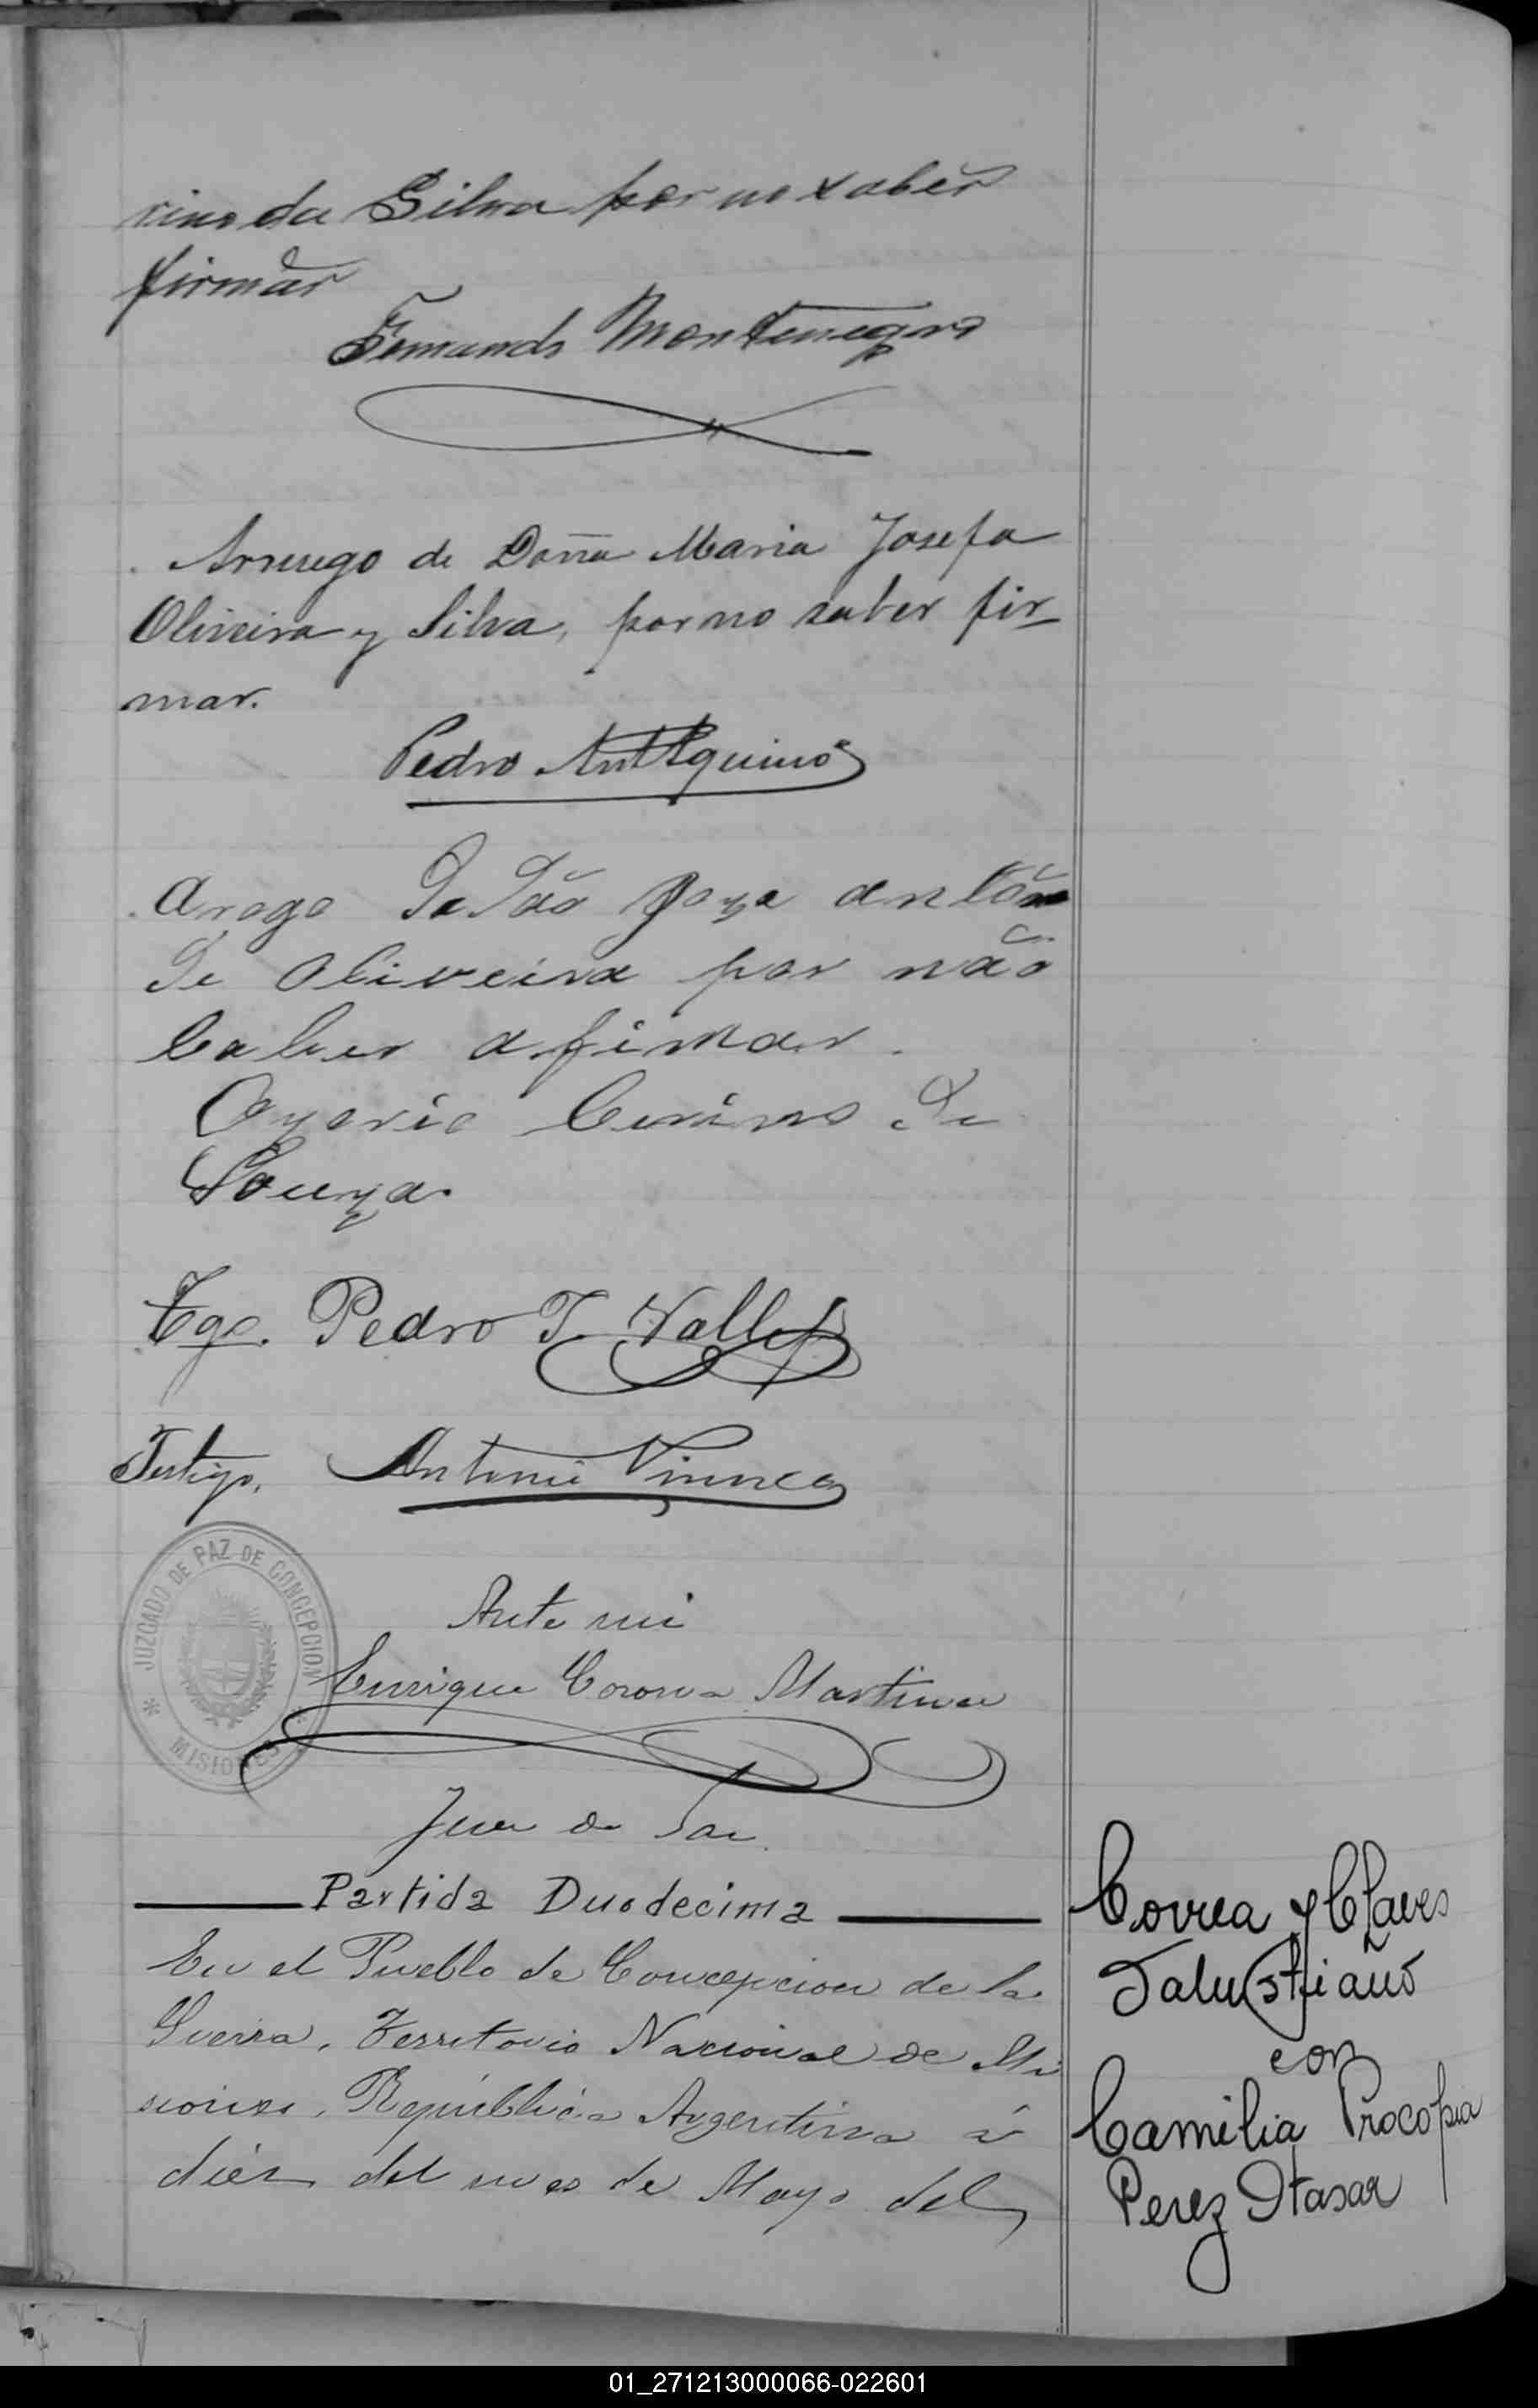 rino da Silva por no saber
firmar
Fernando Montenegro
Arruego de Doña Maria Josefa
Oliveira y Silva, por no saber fir-
mar.
Pedro Ant Aquino
Arogo de
de Oliveira por não
saber afirmar.
de
Souza.
Tgo. Pedro T. Vallejos
Testigo, Antonio
JUZGADO DE PAZ DE CONCEPCION
* MISIONES *
Ante mi
Enrique Corona Martinez
Juez de Paz
Partida Duodecima
En el Pueblo de Concepcion de la
Sierra, Territorio Nacional de Mi
siones, República Argentina á
diez del mes de Mayo del
Correa y Chaves
Salustiano
con
Camilia Procopia
Perez Itasar
01_271213000066-022601